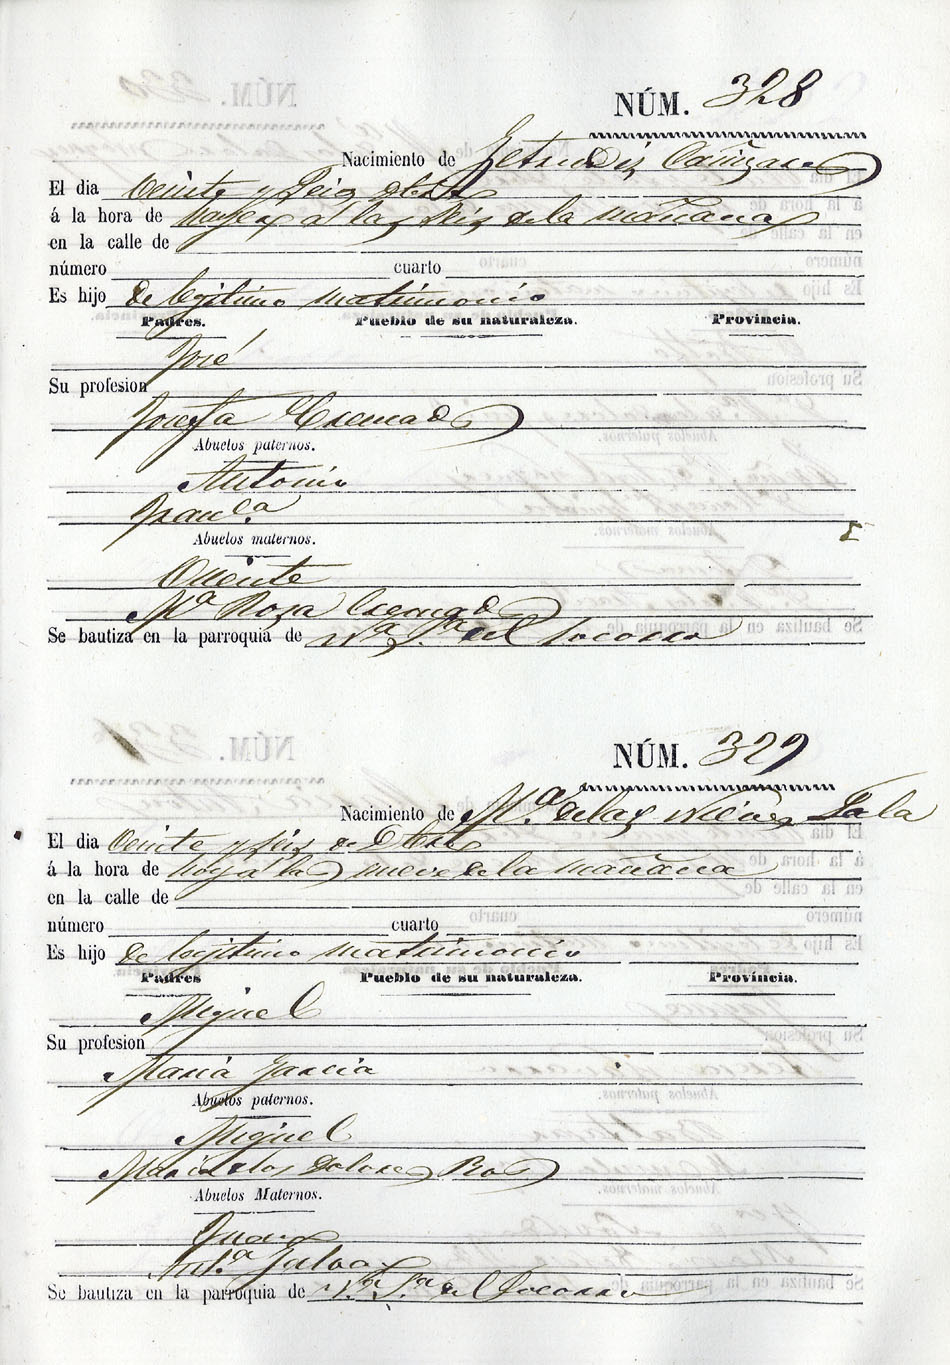 NÚM. 328
Nacimiento de Getrudis Cañizares
El dia Veinte y Seis
á la hora de a las Seis de la mañana
en la calle de
número cuarto
Es hijo de legitimo matrimonio
Padres. Pueblo de su naturaleza. Provincia.
José
Su profesion
Josefa Cremad.s
Abuelos paternos.
Antonio
Fran.ca
Abuelos maternos.
Vicente
M.a Rosa Cremad.s
Se bautiza en la parroquia de N.a S.a del Socorro
NÚM. 329
Nacimiento de M.a de las Nieves Sala
El dia Veinte y seis de
á la hora de hoy a las nueve de la mañana
en la calle de
número cuarto
Es hijo de legitimo matrimonio
Padres Pueblo de su naturaleza. Provincia.
Miguel
Su profesion
Maria Garcia
Abuelos paternos.
Miguel
Maria de los Dolores
Abuelos Maternos.
Juan
M.a
Se bautiza en la parroquia de N.a S.a del Socorro